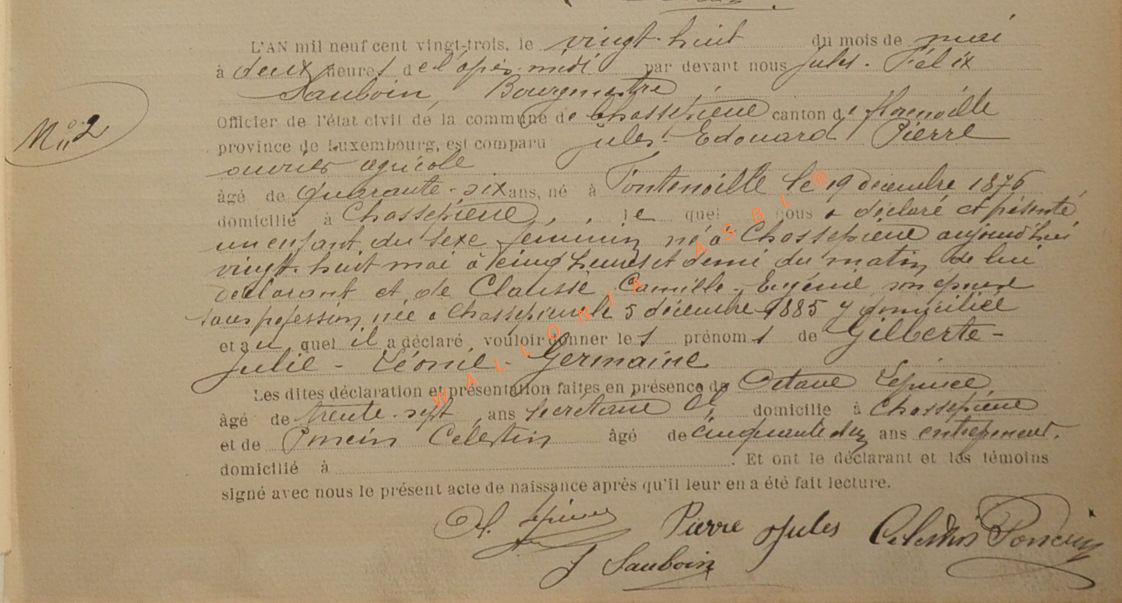 L'AN mil neuf cent vingt-trois, le vingt-huit du mois de mai
à deux heures de l'après-midi par devant nous Jules-Félix
Sauboin, Bourgmestre
Officier de l'état civil de la commune de Chassepierre canton de Florenville
province de Luxembourg, est comparu Jules-Edouard Pierre
ouvrier agricole
N° 2
âgé de quarante-six ans, né à Fontenoille le 19 décembre 1876
domicilié à Chassepierre, , le quel nous a déclaré et présenté
un enfant du sexe féminin né à Chassepierre aujourd'hui
vingt-huit mai à cinq heures et demi du matin de lui
déclarant et de Clausse Camille-Eugénie son épouse
sans profession, née à Chassepierre le 5 décembre 1885 y domiciliée
et au quel il a déclaré vouloir donner les prénoms de Gilberte-
Julie-Léonie-Germaine
Les dites déclaration et présentation faites en présence de Octave Lepince
âgé de trente-sept ans secrétaire Cl domicilié à Chassepierre
et de Poncin Celestin âgé de cinquante deux ans entrepreneur.
domicilié à . Et ont le déclarant et les témoins
signé avec nous le présent acte de naissance après qu'il leur en a été fait lecture.
Pierre Jules Celestin Poncin
J Sauboin
WALLONIA ASBL ©